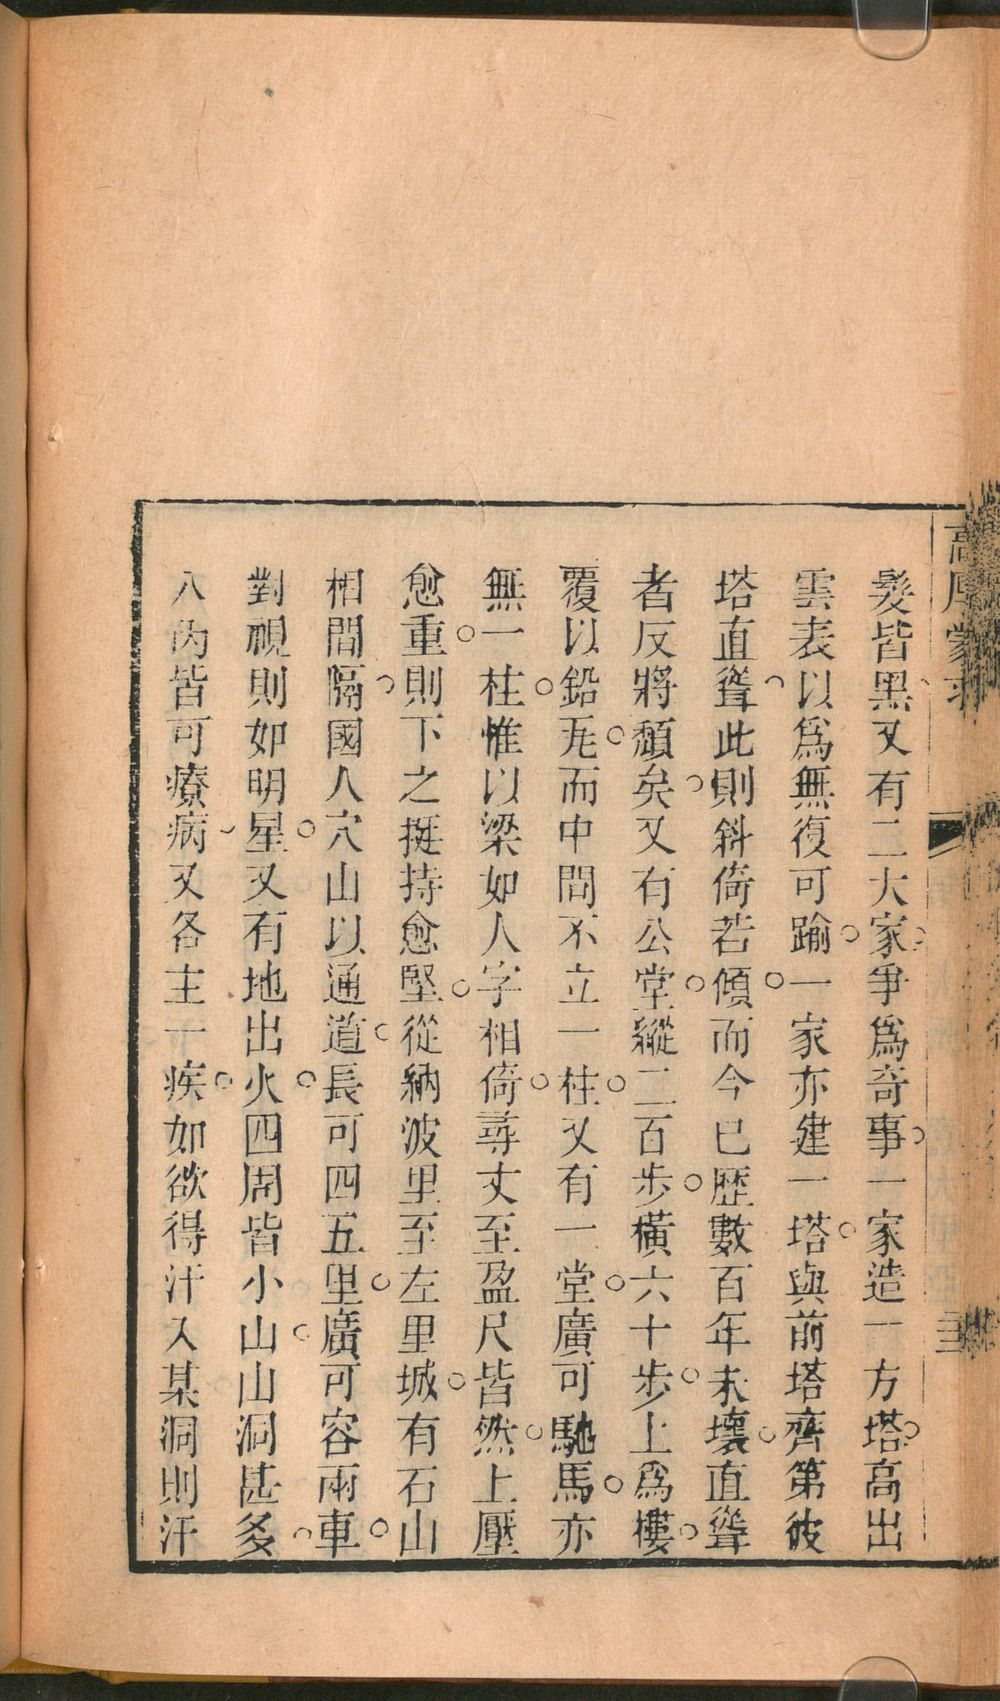 高厚蒙求
髮皆黑又有二大家爭爲奇事一家造一方塔高出
雲表以爲無復可踰一家亦建一塔與前塔齊第彼
塔直聳此則斜倚若傾而今已歷數百年未壞直聳
者反將頹矣又有公堂縱二百步橫六十步上爲樓
覆以鉛瓦而中間不立一柱又有一堂廣可馳馬亦
無一柱惟以梁如人字相倚尋丈至盈尺皆然上壓
愈重則下之挺持愈堅從納波里至左里城有石山
相間隔國人穴山以通道長可四五里廣可容兩車
對視則如明星又有地出火四周皆小山山洞甚多
入內皆可療病又各主一疾如欲得汗入某洞則汗